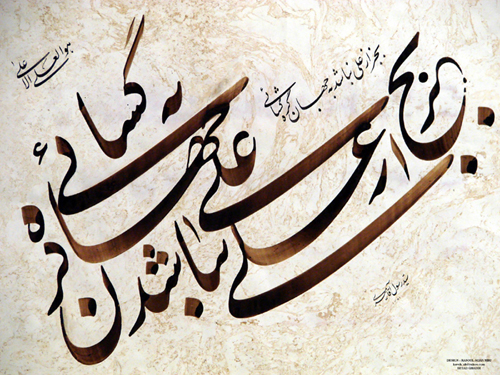 هو العلی الاعلی
بجز از علی نباشد به جهان گره گشائی
بجز از علی نباشد به جهان گره گشائی
سید رسول